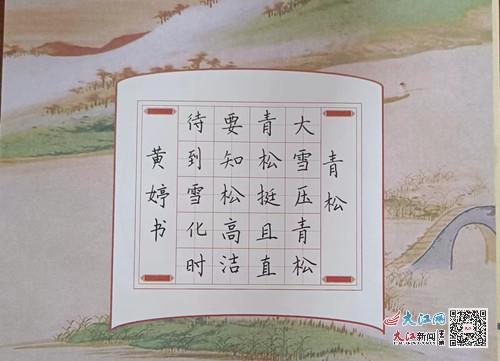 青松
大雪压青松
青松挺且直
要知松高洁
待到雪化时
黄婷书
大江网
大江新闻